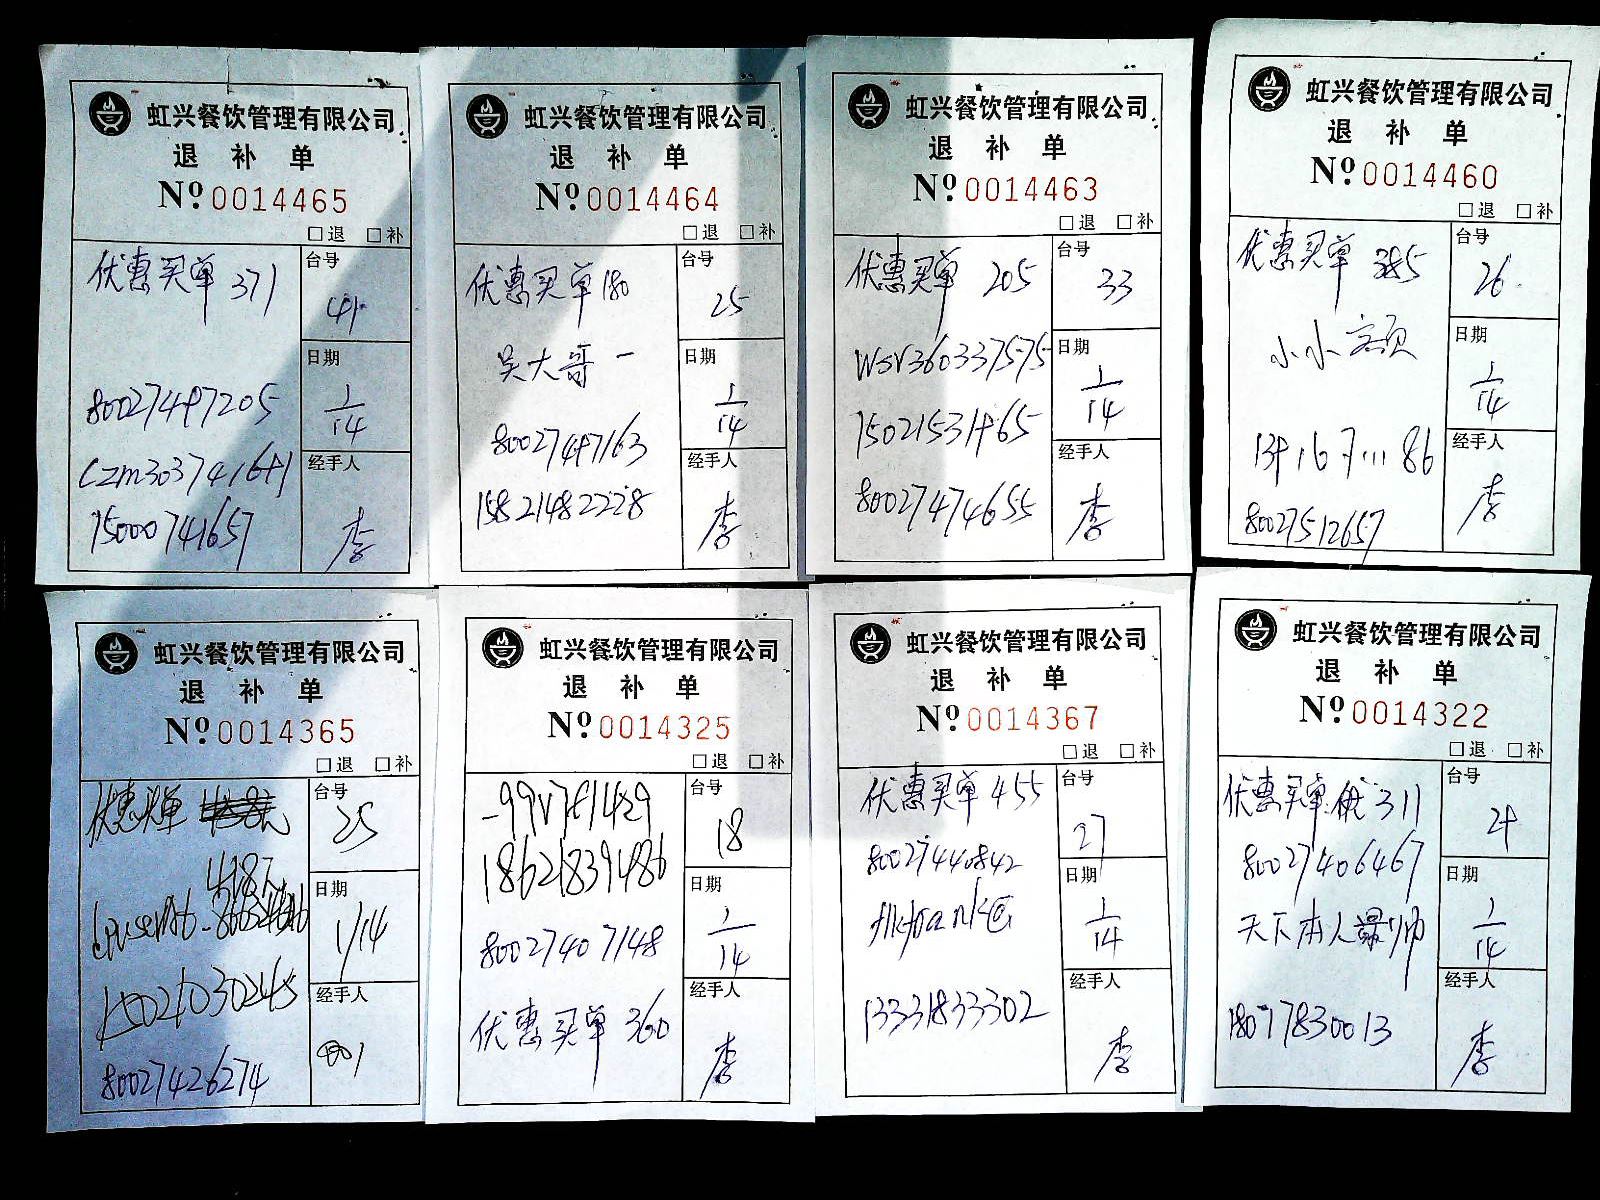 虹兴餐饮管理有限公司
退 补 单
Nº 0014465
□退 □补
优惠买单 371
台号
41
80027497205
日期
1/14
czm303741641
15000741657
经手人
李
虹兴餐饮管理有限公司
退 补 单
Nº 0014464
□退 □补
优惠买单 180
台号
25
吴大哥一
日期
1/14
80027497163
15821482228
经手人
李
虹兴餐饮管理有限公司
退 补 单
Nº 0014463
□退 □补
优惠买单 205
台号
33
wsv360337575
日期
1/14
15021531465
80027474655
经手人
李
虹兴餐饮管理有限公司
退 补 单
Nº 0014460
□退 □补
优惠买单 385
台号
26
小小
日期
1/14
86
80027512657
经手人
李
虹兴餐饮管理有限公司
退 补 单
Nº 0014365
□退 □补
优惠买单
台号
25
日期
1/14
15021030245
80027426274
经手人
虹兴餐饮管理有限公司
退 补 单
Nº 0014325
□退 □补
台号
18
18621839486
日期
1/14
80027407148
优惠买单 360
经手人
李
虹兴餐饮管理有限公司
退 补 单
Nº 0014367
□退 □补
优惠买单 455
台号
27
80027440842
日期
1/14
13331833302
经手人
李
虹兴餐饮管理有限公司
退 补 单
Nº 0014322
□退 □补
优惠买单 311
台号
24
80027406467
日期
1/14
天下本人最帅
18017830013
经手人
李